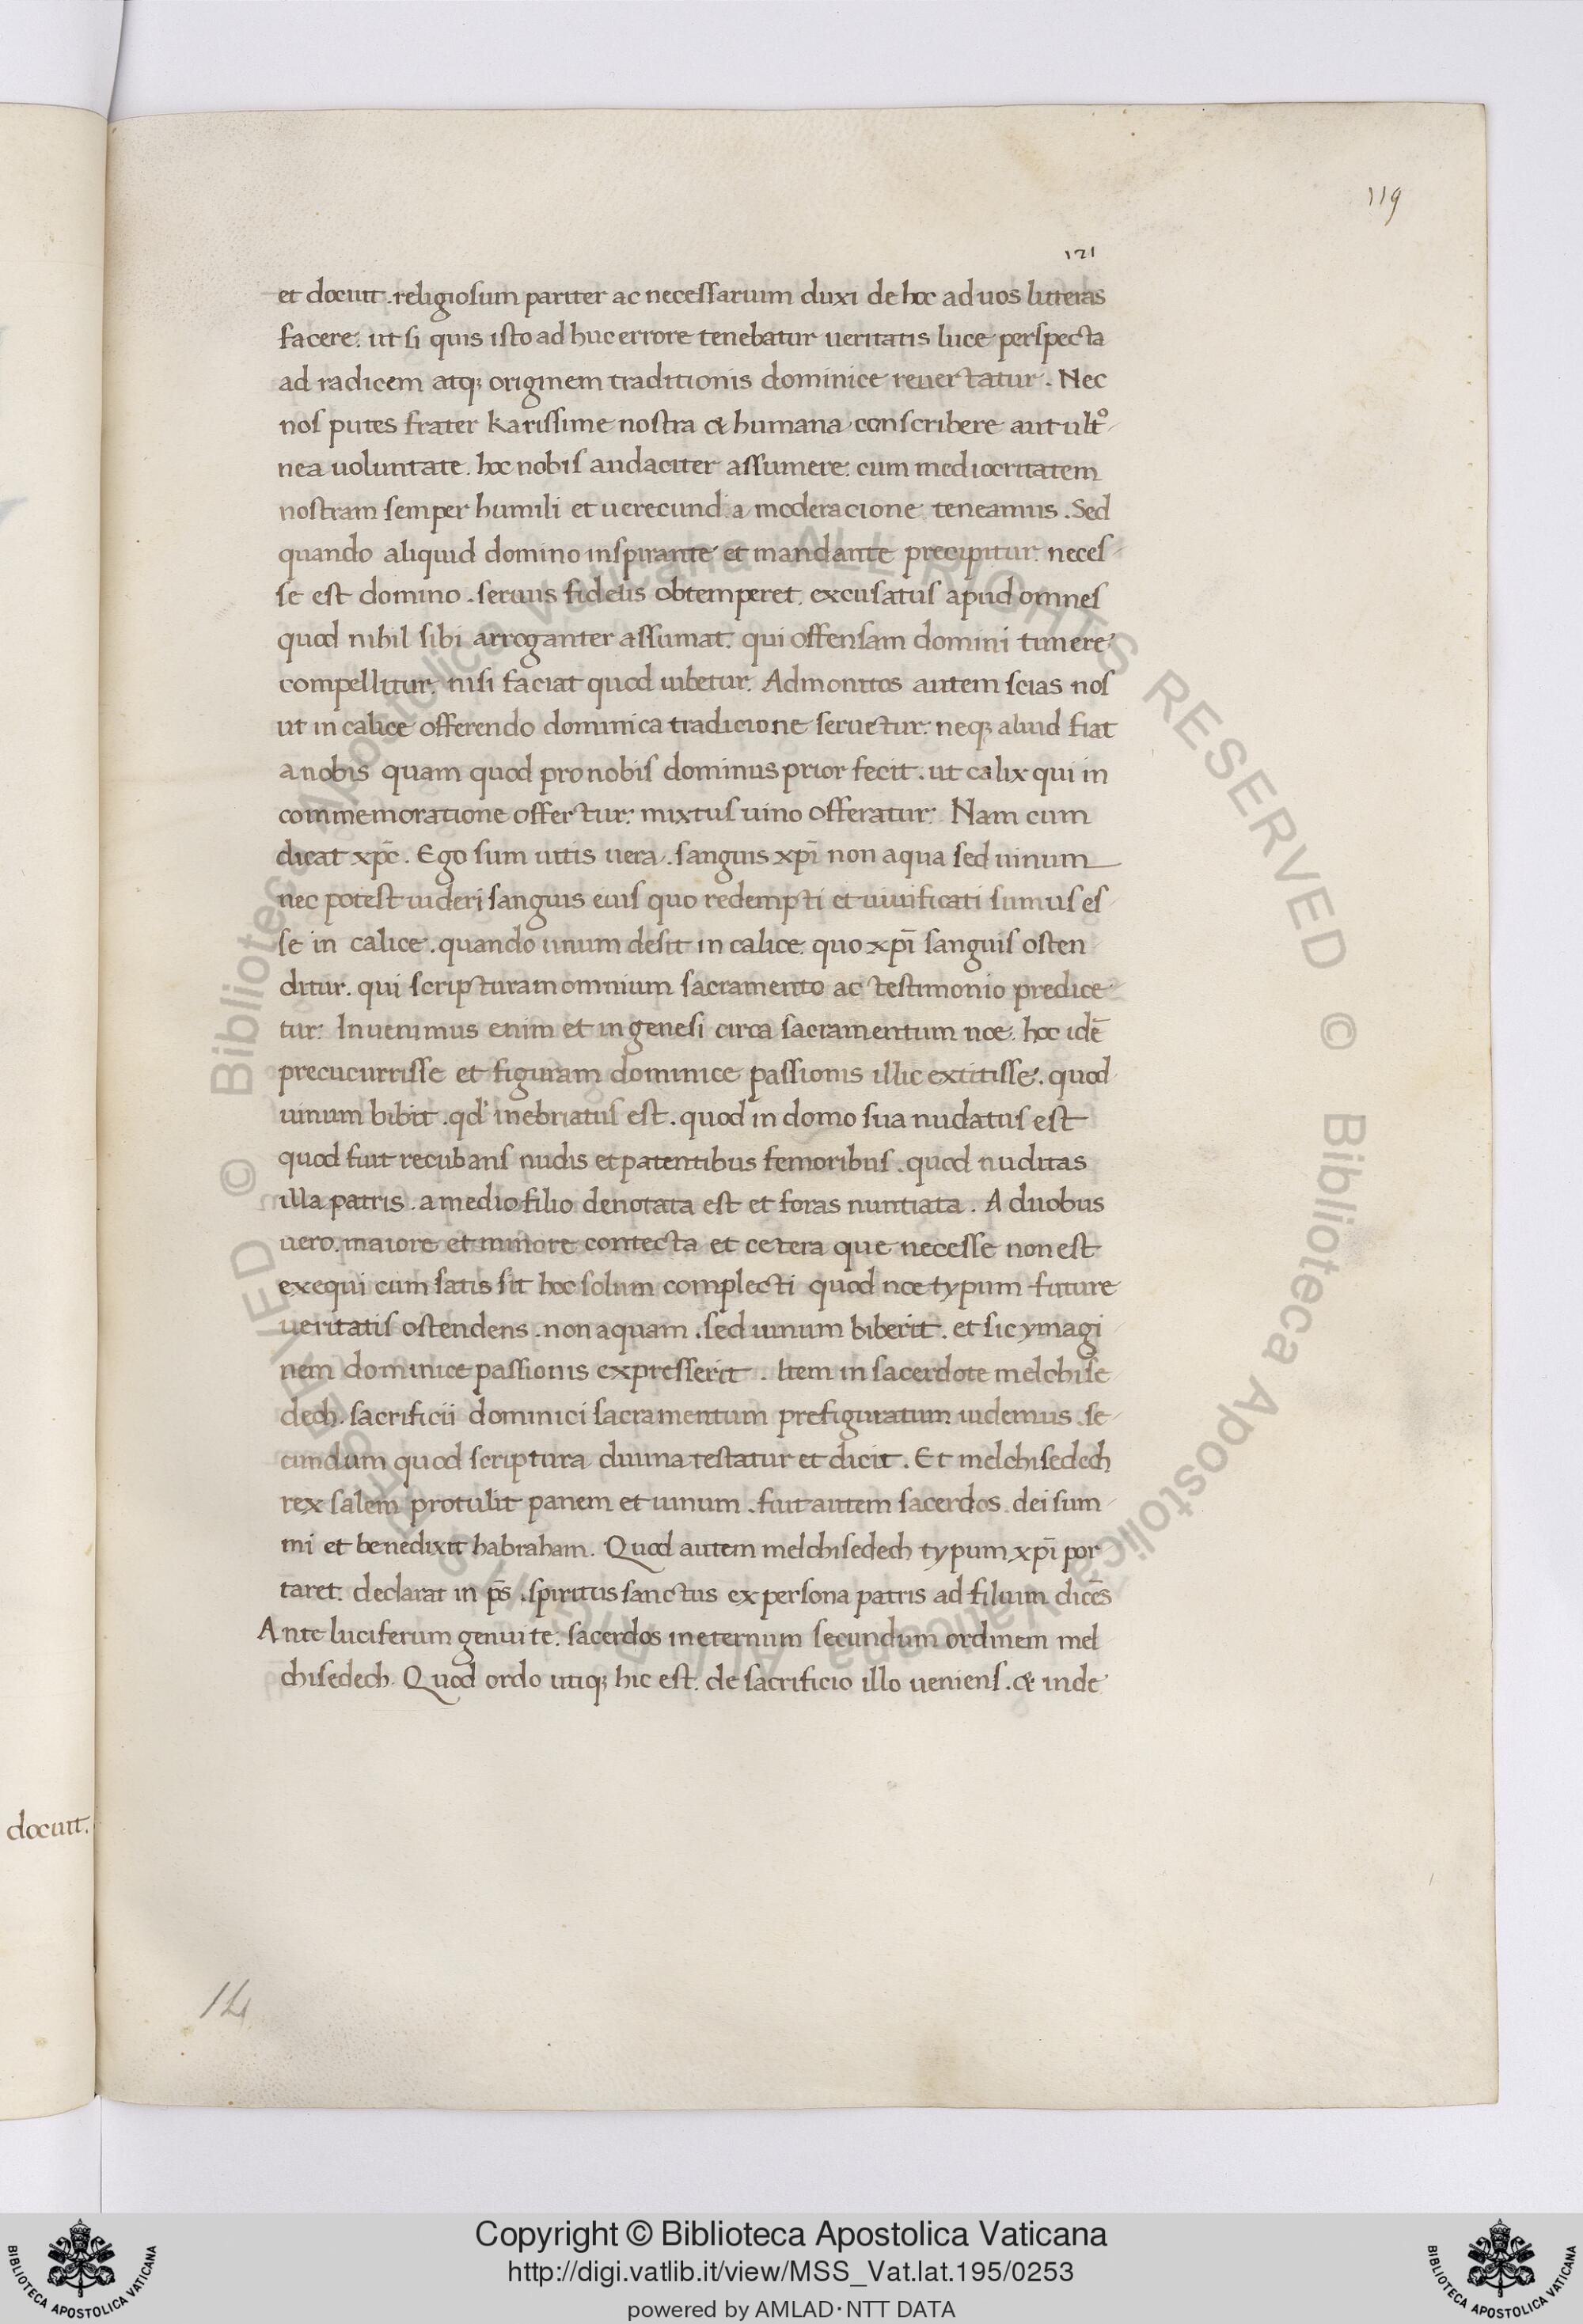 119
121
et docuit . religiosum pariter ac necessarium duxi de hoc ad uos litteras
facere . ut si quis isto ad huc errore tenebatur ueritatis luce perspecta
ad radicem atq; originem traditionis dominice reuertatur . Nec
nos putes frater karissime nostra & humana conscribere aut ultº
nea uoluntate . hoc nobis audaciter assumere : cum mediocritatem
nostram semper humili et uerecunda moderacione teneamus . Sed
quando aliquid domino inspirante et mandante precipitur . neces
se est domino . seruus fidelis obtemperet . excusatus apud omnes
quod nihil sibi arroganter assumat . qui offensam domini timere
compellitur . nisi faciat quod iubetur . Admonitos autem scias nos
ut in calice offerendo dominica tradicione seruetur : neq; aliud fiat
a nobis quam quod pro nobis dominus prior fecit . ut calix qui in
commemoratione offertur : mixtus uino offeratur : Nam cum
dicat xp̄c . Ego sum uitis uera . sanguis xp̄i non aqua sed uinum
nec potest uideri sanguis eius quo redempti et uiuificati sumus es
se in calice . quando uinum desit in calice . quo xp̄i sanguis osten
ditur . qui scripturam omnium sacramento ac testimonio predice
tur : Inuenimus enim et in genesi circa sacramentum noe . hoc idē
precucurrisse et figuram dominice passionis illic extitisse . quod
uinum bibit . qd' inebriatus est . quod in domo sua nudatus est
quod fuit recubans nudis et patentibus femoribus . quod nuditas
illa patris . a medio filio denotata est et foras nuntiata . A duobus
uero . maiore et minore contecta et cetera que necesse non est
exequi cum satis sit hoc solum complecti quod noe typum future
ueritatis ostendens . non aquam . sed uinum biberit . et sic ymagi
nem dominice passionis expresserit . Item in sacerdote melchise
dech . sacrificii dominici sacramentum prefiguratum uidemus . se
cundum quod scriptura diuina testatur et dicit . Et melchisedech
rex salem protulit panem et uinum . fuit autem sacerdos dei sum
mi et benedixit habraham . Quod autem melchisedech typum xp̄i por
taret . declarat in p̄s . spiritus sanctus ex persona patris ad filium dicēs
Ante luciferum genui te : sacerdos in eternum secundum ordinem mel
chisedech . Quod ordo utiq; hic est . de sacrificio illo ueniens . & inde
docuit .
14
© Biblioteca Apostolica Vaticana ALL RIGHTS RESERVED © Biblioteca Apostolica Vaticana ALL RIGHTS RESERVED
Copyright © Biblioteca Apostolica Vaticana
http://digi.vatlib.it/view/MSS_Vat.lat.195/0253
powered by AMLAD · NTT DATA
BIBLIOTECA APOSTOLICA VATICANA
BIBLIOTECA APOSTOLICA VATICANA